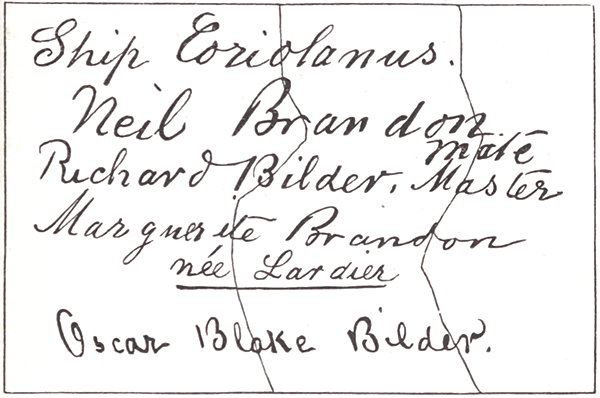 Ship Coriolanus.
Neil Brandon
mate
Richard Bilder, Master
Marguerite Brandon
née Lardier
Oscar Blake Bilder.